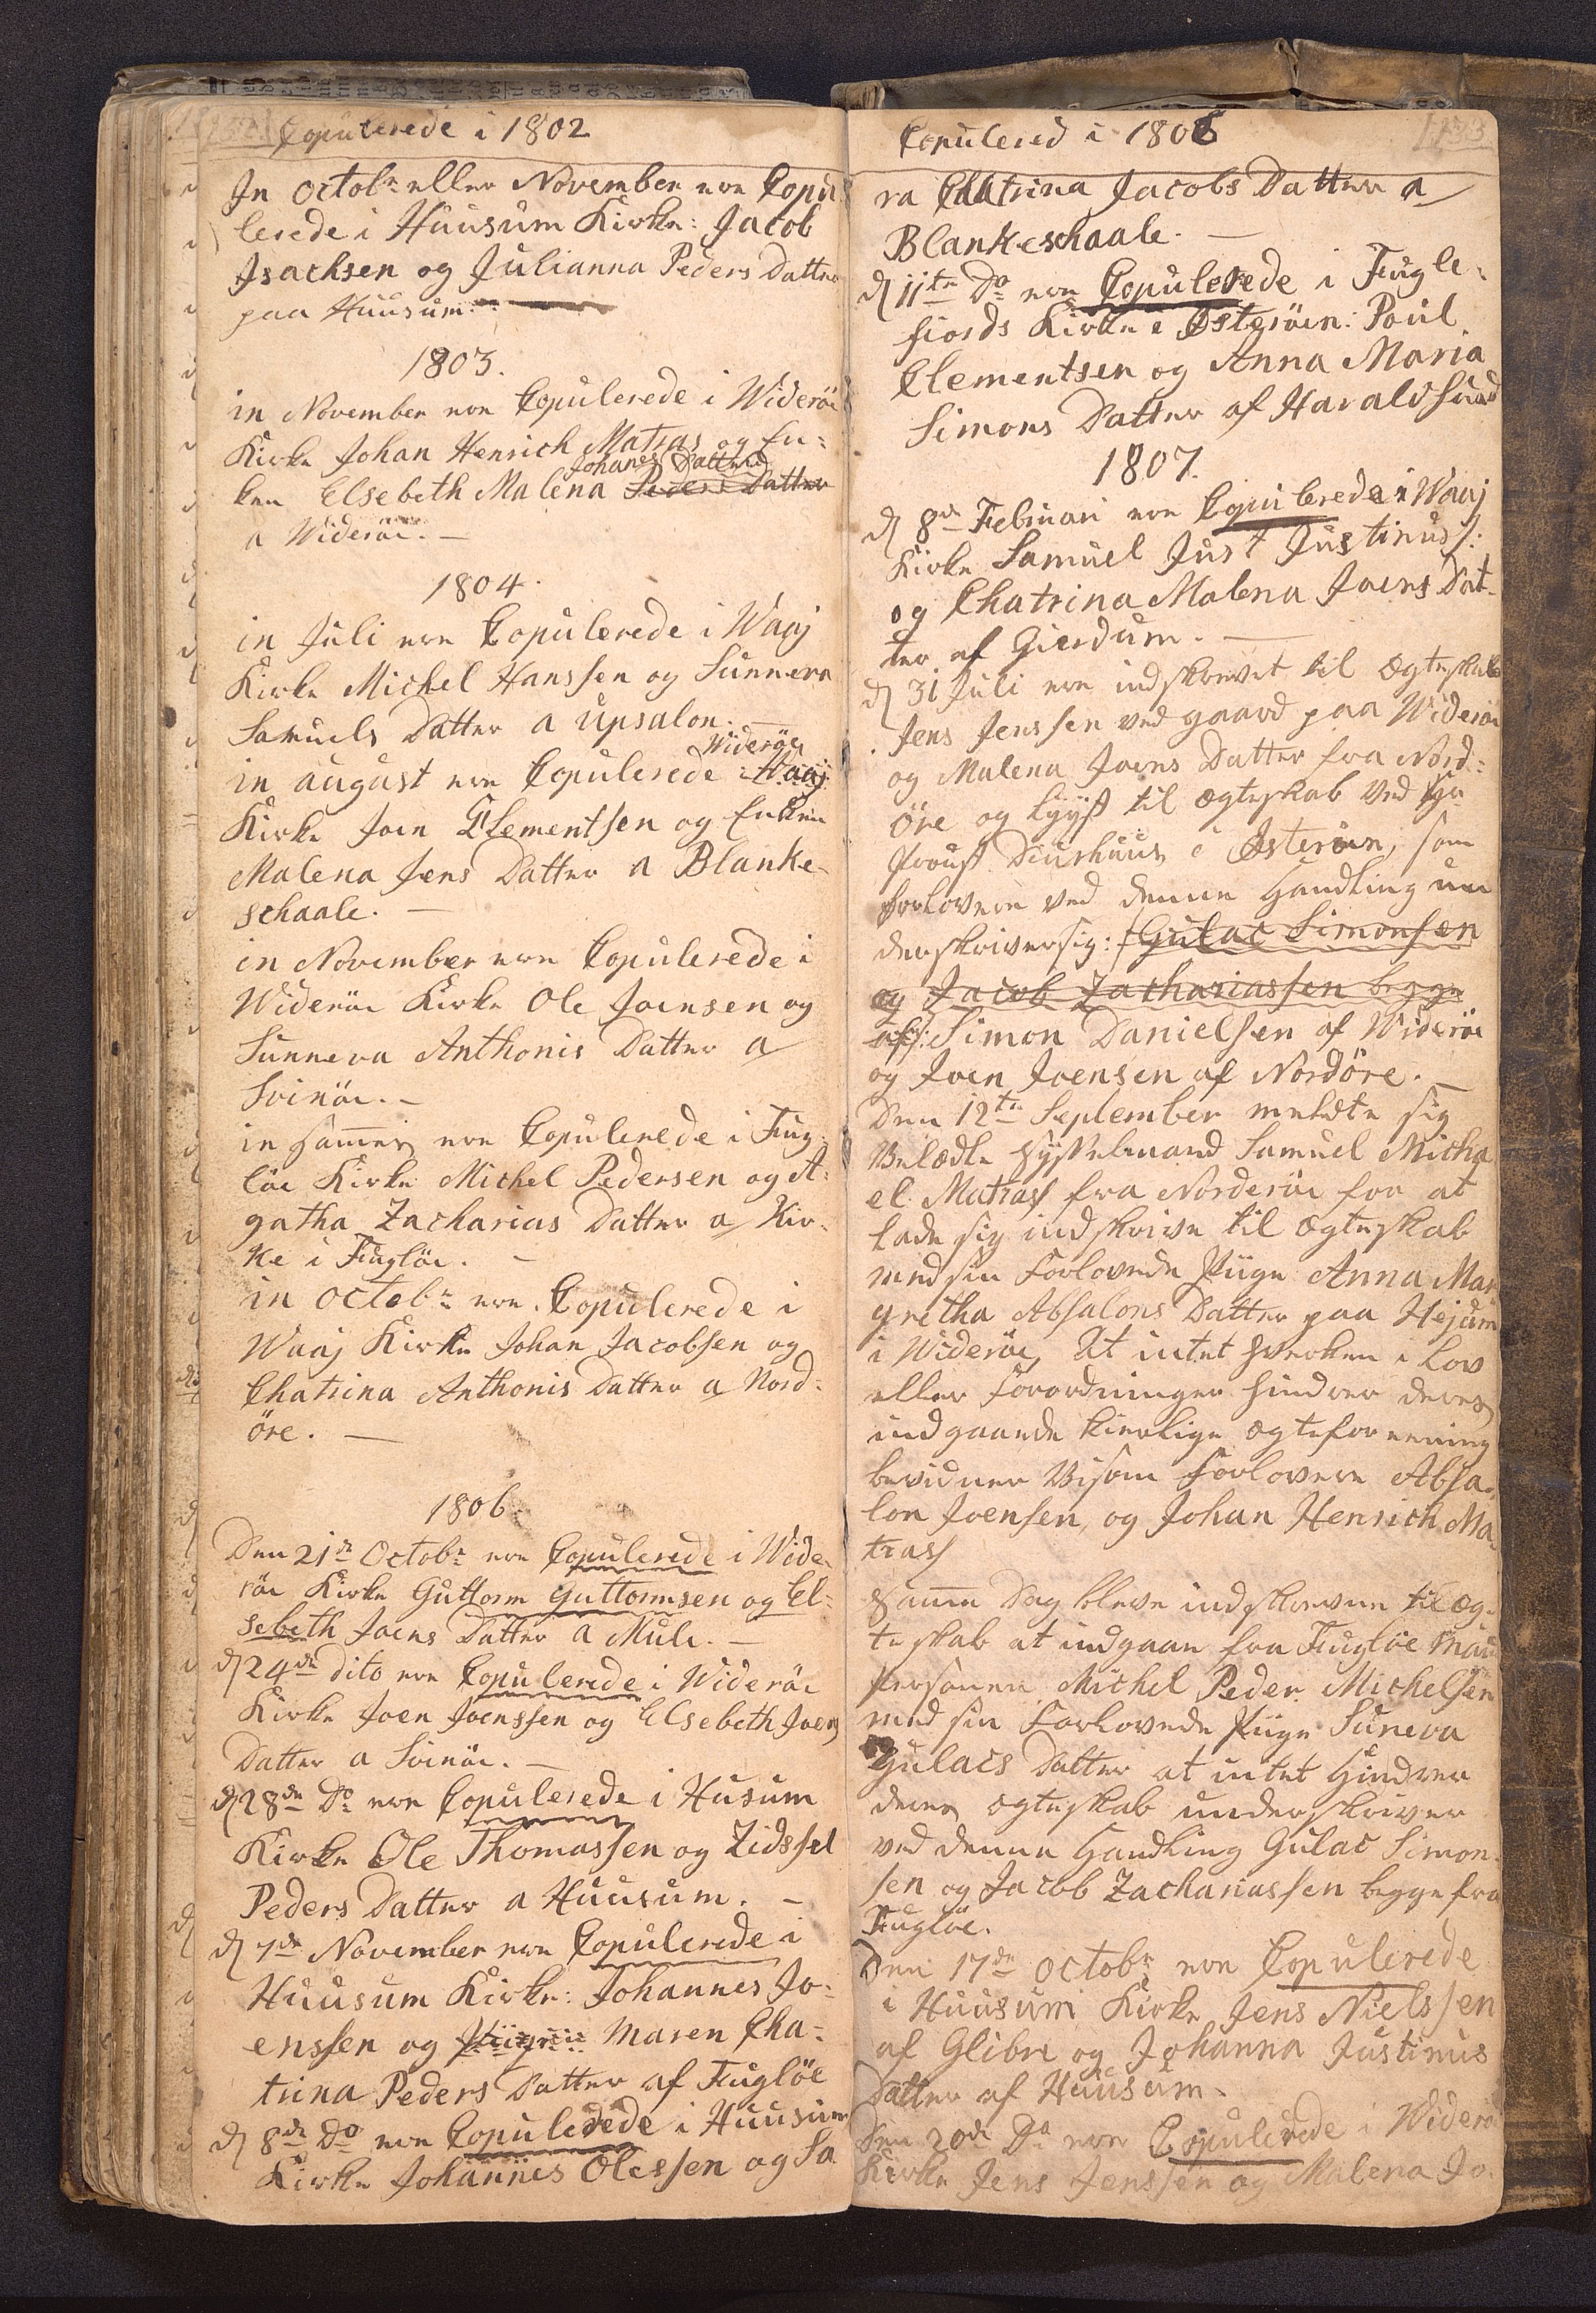 132
Copulerede i 1802
In Octobr eller November ere Copu
lerede i Huusum Kirke: Jacob
Isachsen og Julianna Peders Datter
paa Huusum.
1803.
in November ere Copulerede i Wideröe
Kirke Johan Henrich Matras og En-
Johanes Datter
ken Elsebeth Malena Peders Datter
a Wideröe.
1804.
in Juli ere Copulerede i Waaj
Kirke Michel Hanssen og Sunnera
Samuels Datter a Upsalon.
Wideröe
in august ere Copulerede i Waaj
Kirke Joen Clementsen og Enken
Malena Jens Datter a Blanke-
schaale.
in November ere Copulerede i
Wideröe Kirke Ole Joensen og
Sunneva Anthonis Datter a
Svinöe.
in samme ere Copulerede i Fug-
löe Kirke Michel Pedersen og A-
gatha Zacharias Datter a Kir-
ke i Fuglöe.
in Octobr ere Copulerede i
Waaj Kirke Johan Jacobsen og
Chatrina Anthonis Datter a Nord-
öre.
1806.
Den 21de Octobr ere Copulerede i Wide-
röe Kirke Guttorm Guttormsen og El-
sebeth Joens Datter a Mule.
d 24de dito ere Copulerede i Wideröe
Kirke Joen Joenssen og Elsebeth Joens
Datter a Svinöe.
d 28de Do ere Copulerede i Husum
Kirke Ole Thomassen og Zidssel
Peders Datter a Huusum.
d 7de November ere Copulerede i
Huusum Kirke: Johannes Jo-
enssen og Piigen Maren Cha-
trina Peders Datter af Fuglöe
d 8de Do ere Copulerede i Huusum
Kirke Johannes Olessen og Sa
Copulered i 1806
133
ra Chatrina Jacobs Datter a
Blankeschaale.
d 11te Do ere Copulerede i Fugle-
fiords Kirke i Österöen: Poul
Clementsen og Anna Maria
Simons Datter af Haraldsund
1807.
d 8de Februari ere Copulerede i Waaj
Kirke Samuel Just Justinuss:
og Chatrina Malena Joens Dat-
ter af Gierdum.
d 31 Juli ere indskrevet til Ægteskab
Jens Jenssen ved gaard paa Wideröe
og Malena Joens Datter fra Nord-
öre og lyyst til ægteskab ved Hr
Proust Diurhuus i Österöen, som
Forlovere ved denne Handling un
derskriver sig: Gulac Simonsen
og Jacob Zachariassen begge
af: Simon Danielsen af Wideröe
og Joen Joensen af Nordöre.
Den 12te September meldte sig
Velædle Sysselmand Samuel Micha
el Matras fra Norderöe for at
lade sig indskrive til ægteskab
med sin Forlovede Piige Anna Mar
gretha Absalons Datter paa Hejum
i Wideröe, At intet hverken i Lov
eller Forordninger hindrer deres
indgaaende kierlige ægteforeening
bevidner Vi som Forlovere Absa-
lon Joensen, og Johan Henrich Ma
tras
Samme Dag bleve indskrevne til æg-
teskab at indgaae fra Fuglöe Mand
Personen Michel Peder Michelsen
med sin Forlovede Piige Suneva
Gulacs Datter at intet Hindrer
deres ægteskab underskriver
ved denne Handling Gulac Simon-
sen og Jacob Zachariassen begge fra
Fuglöe.
Den 17de Octobr ere Copulerede
i Huusum Kirke Jens Nielssen
af Glibre og Johanna Justinus
Datter af Huusum.
Den 20de Do ere Copulerede i Wideröe
Kirke Jens Jenssen og Malena Jo-